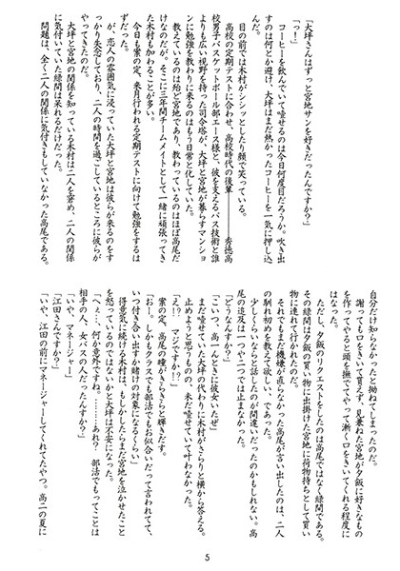 「大坪さんはずっと宮地サンを好きだったんですか？」
「っ！」
コーヒーを飲んでいて噎せるのは今日何度目だろうか。吹き出
すのは何とか避け、大坪はまだ熱かったコーヒーを一気に押し込
んだ。
目の前では木村がシシッとしたり顔で笑っている。
高校の定期テストに合わせ、高校時代の後輩――秀徳高
校男子バスケットボール部エース様と、彼を支えるパス技術と誰
よりも広い視野を持った司令塔が、大坪と宮地が暮らすマンショ
ンに勉強を教わりに来るのはもう日常と化していた。
教えているのは殆ど宮地であり、教わっているのはほぼ高尾だ
けなのだが、そこに三年間チームメイトとして一緒に頑張ってき
た木村も加わることが多い。
今日も案の定、来月行われる定期テストに向けて勉強をするは
ずが、恋人の雰囲気に浸っていた大坪と宮地は彼らが来るのをす
っかり失念しており、二人の時間を過ごしているところに彼らが
やってきたのだ。
大坪と宮地の関係を知っている木村は二人を窘め、二人の関係
に気付いていた緑間は呆れるだけだった。
問題は、全く二人の関係に気付きもしていなかった高尾である。
自分だけ知らなかったと拗ねてしまったのだ。
謝っても口をきいて貰えず、見兼ねた宮地が夕飯に好きなもの
を作ってやると頭を撫でてやって漸く口をきいてくれる程度に
はなった。
ただし、夕飯のリクエストをしたのは高尾ではなく緑間である。
その緑間は夕飯の買い物に出掛けた宮地に荷物持ちとして買い
物に連れて行かれたのだ。
それでもまだ機嫌が直らなかった高尾が言い出したのは、二人
の馴れ初めを教えて欲しい、であった。
少しくらいならと話したのが間違いだったのかもしれない。高
尾の追及は一つや二つでは止まなかった。
「どうなんすか？」
「こいつ、高一んときに彼女いたぜ」
まだ噎せていた大坪の代わりに木村がさらりと横から答える。
止めようと思うものの、未だ噎せていて叶わなかった。
「え！？　マジですか！？」
案の定、高尾の瞳がきらきらと輝きだす。
「おー。しかもクラスでも部活でもお似合いだって言われてて、
いつ付き合い出すか賭けの対象になるくらい」
得意気に続ける木村は、もしかしたらまだ宮地を泣かせたこと
を怒っているのではないかと大坪は不安になった。
「へぇ…、何が意外ですね。……あれ？　部活でもってことは
相手の人、女バスの人だったんすか？」
「いや、マネージャー」
「江田さんですか？」
「いや、江田の前にマネージャーしてくれてたやつ。高二の夏に
5